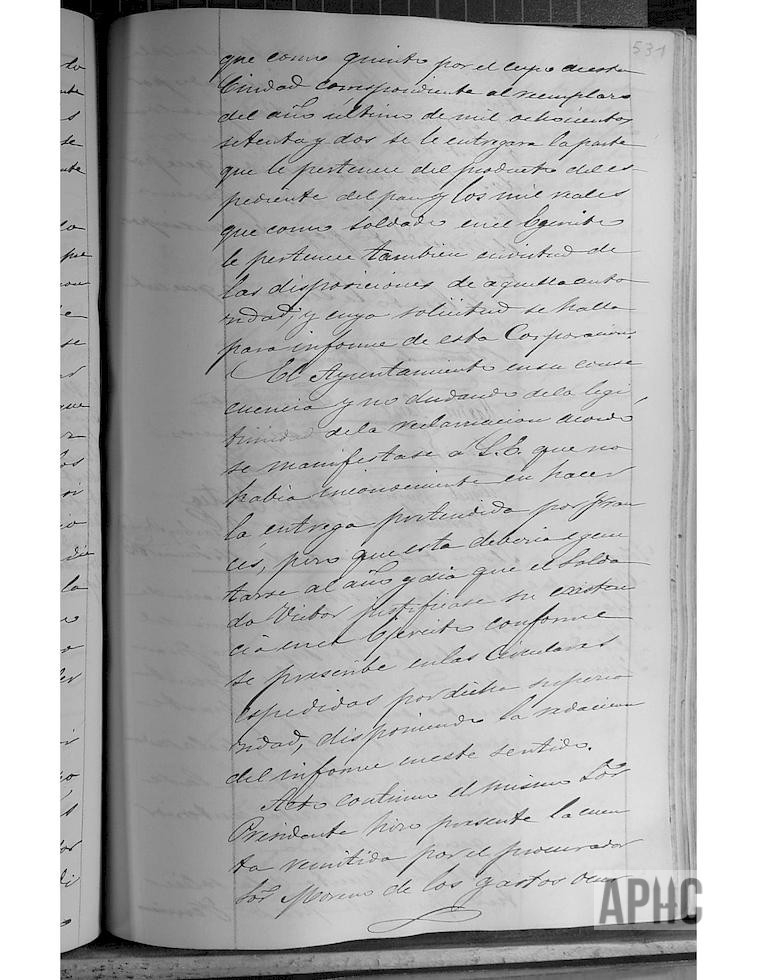 531
que como quinto por el cupo de esta
Ciudad correspondiente al reemplazo
del año último de mil ochocientos
setenta y dos se le entregara la parte
que le pertenece del producto del es-
pediente del pan y los mil reales
que como soldado en el Egercito
le pertenece tambien en virtud de
las disposiciones de aquella auto
ridad, y cuya solicitud se halla
para informe de esta Corporacion.
El Ayuntamiento en su conse
cuencia y no dudando de la legi
timidad de la reclamacion acordó
se manifestase á S.E. que no
habia inconveniente en hacer
la entrega pretendida por Fran
cés, pero que esta deberia egecu
tarse al año y dia que el Solda
do Victor justificase su existen
cia en el Egercito conforme
se prescribe en las Circulares
espedidas por dicha superio
ridad, disponiendo la redaccion
del informe en este sentido.
Acto continuo el mismo Sor
Presidente hizo presente la cuen
ta remitida por el procurador
Sor Moreno de los gastos
APHC